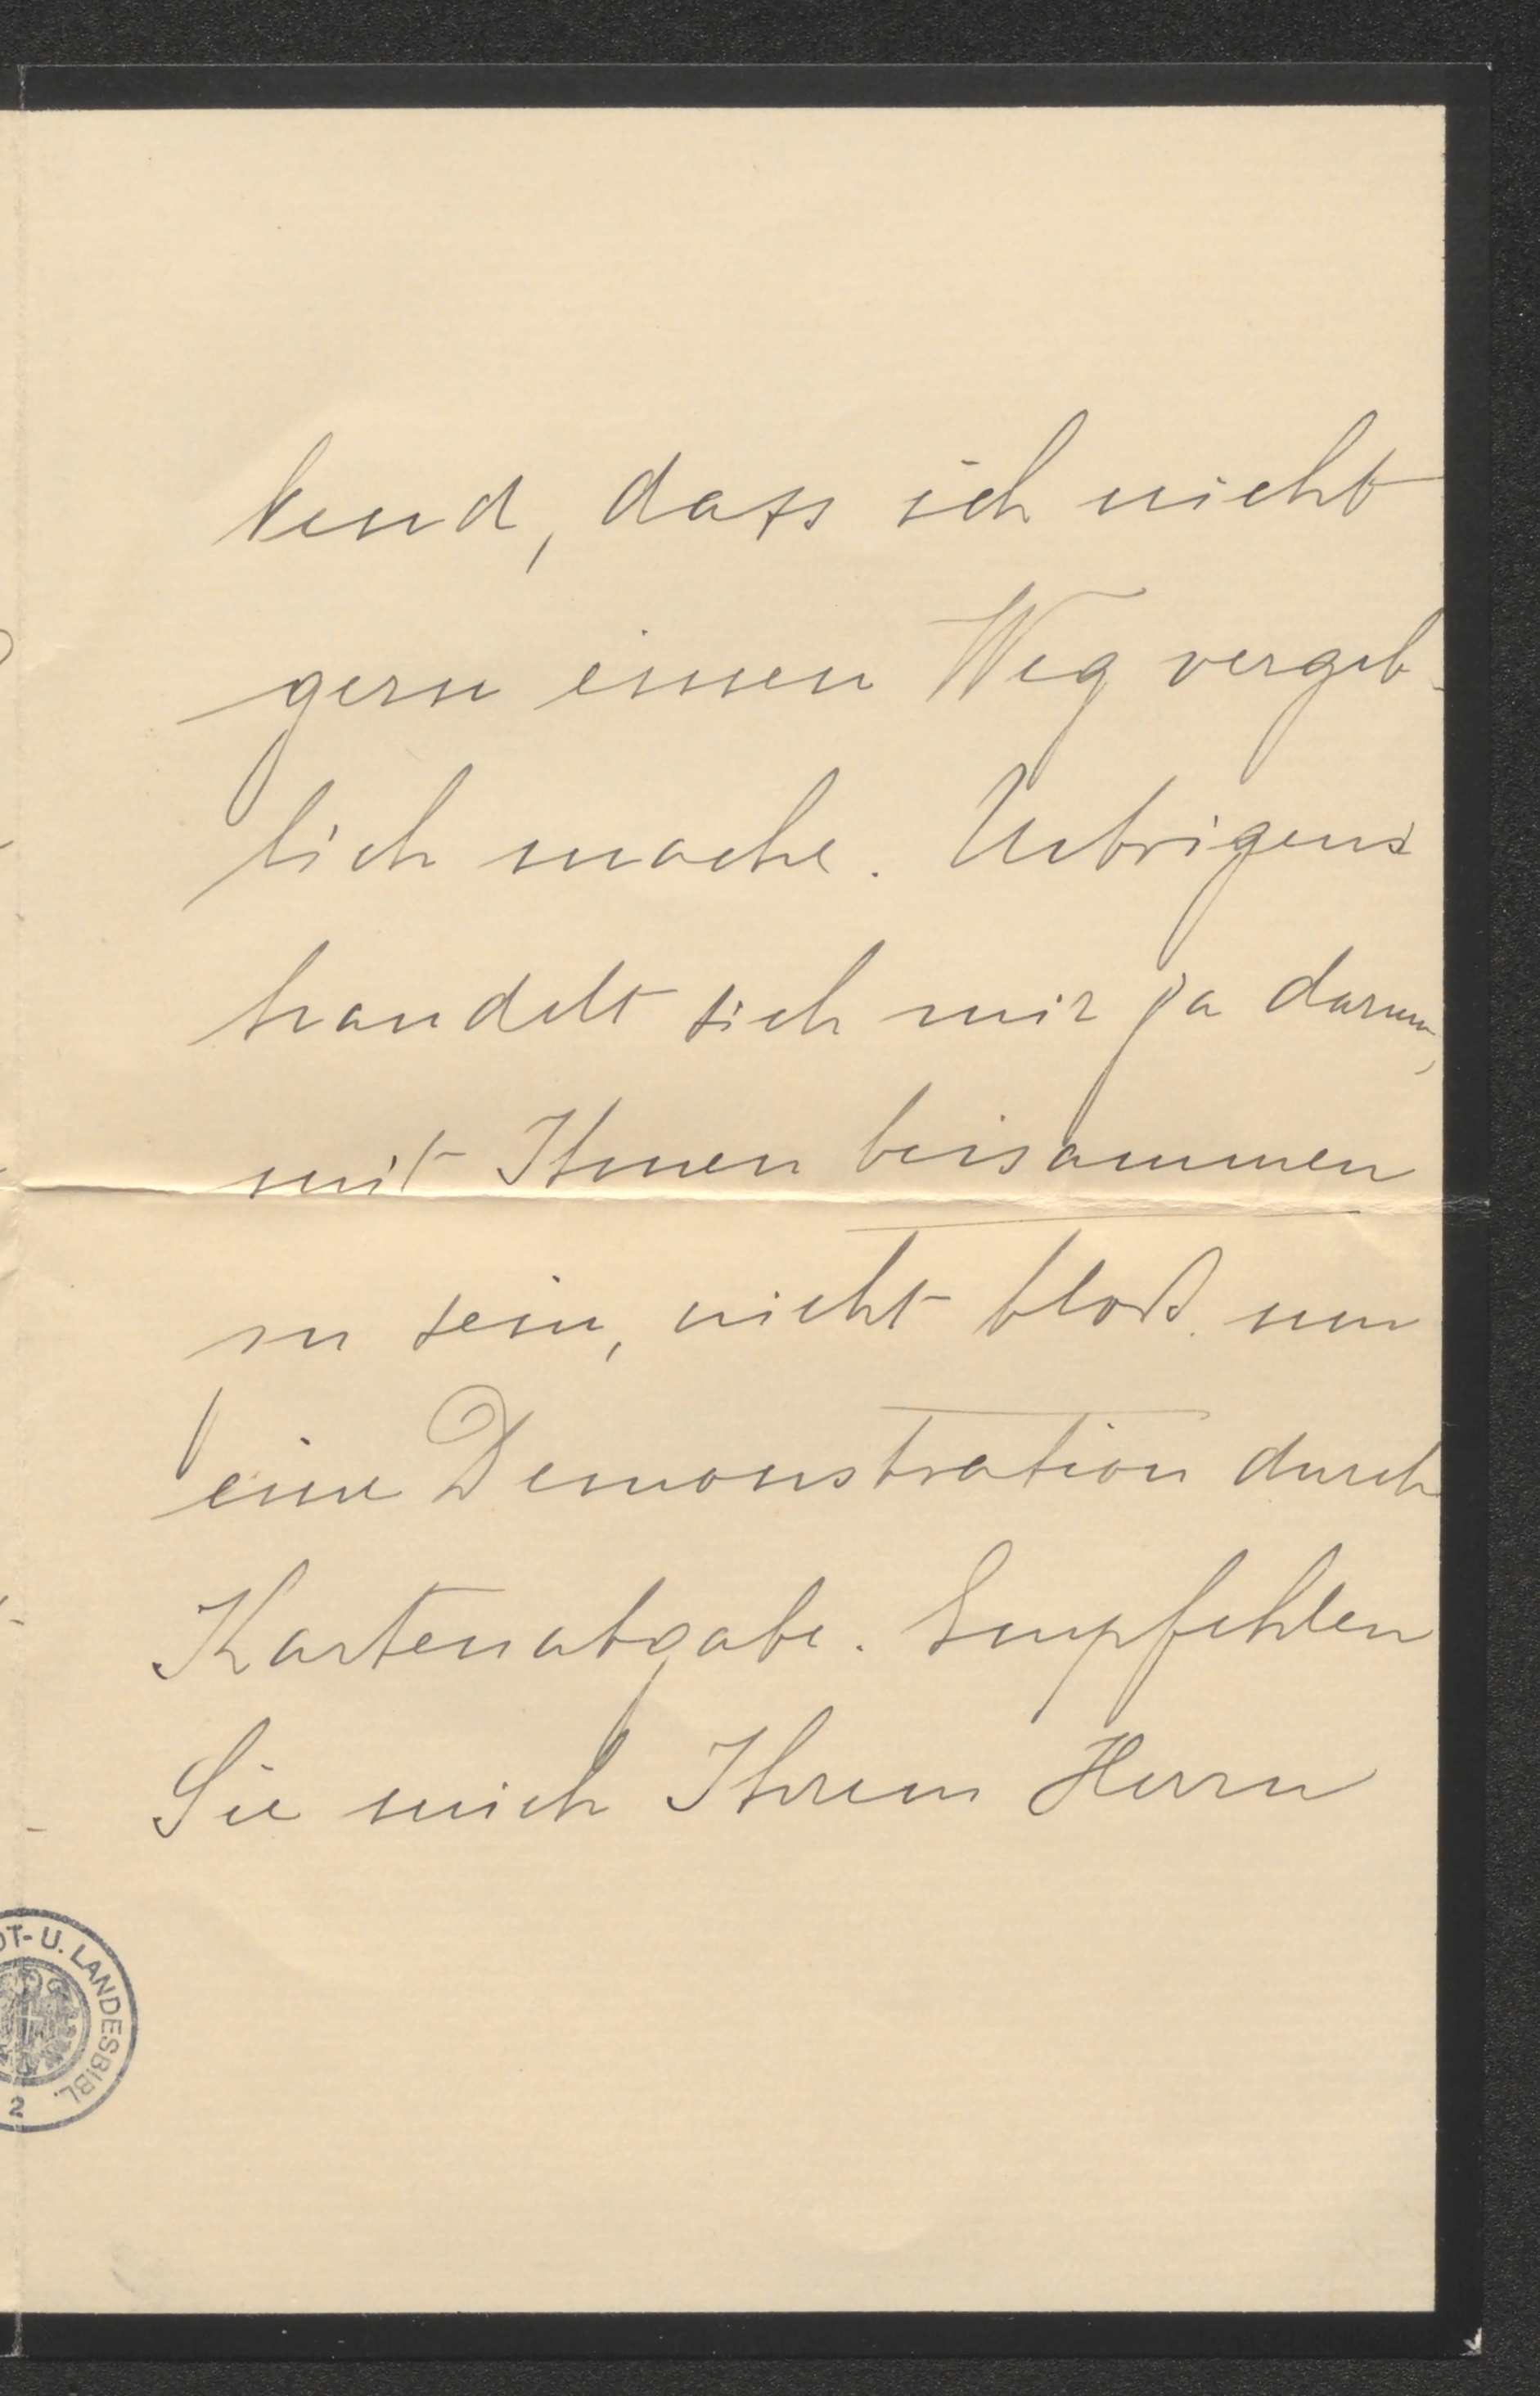 kend, dass ich nicht
gern einen Weg vergeb-
lich mache. Uebrigens
handelt sich mir ja darum,
mit Ihnen beisammen
zu sein, nicht bloß um
eine Demonstration durch
Kartenabgabe. Empfehlen
Sie mich Ihrem Herrn
DT- U. LANDESBIBL.
2